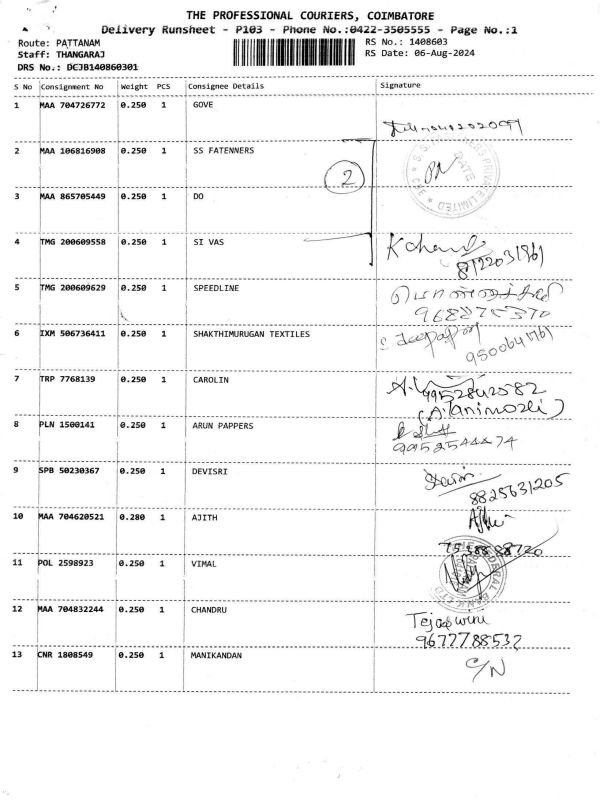 THE PROFESSIONAL COURIERS, COIMBATORE
Delivery Runsheet - P103 - Phone No.:0422-3505555 - Page No.:1
Route: PATTANAM
RS No.: 1408603
Staff: THANGARAJ
RS Date: 06-Aug-2024
DRS No.: DCJB140860301
S No Consignment No Weight PCS Consignee Details Signature
1 MAA 704726772 0.250 1 GOVE
2 MAA 106816908 0.250 1 SS FATENNERS
2
3 MAA 865705449 0.250 1 DO
4 TMG 200609558 0.250 1 SI VAS
8122031961
5 TMG 200609629 0.250 1 SPEEDLINE
6 IXM 506736411 0.250 1 SHAKTHIMURUGAN TEXTILES
7 TRP 7768139 0.250 1 CAROLIN
9952842582
(A.Tanimozli)
8 PLN 1500141 0.250 1 ARUN PAPPERS
9952544474
9 SPB 50230367 0.250 1 DEVISRI
8825631205
10 MAA 704620521 0.280 1 AJITH
11 POL 2598923 0.250 1 VIMAL
12 MAA 704832244 0.250 1 CHANDRU
Tejaswini
9677788532
13 CNR 1808549 0.250 1 MANIKANDAN
C/N